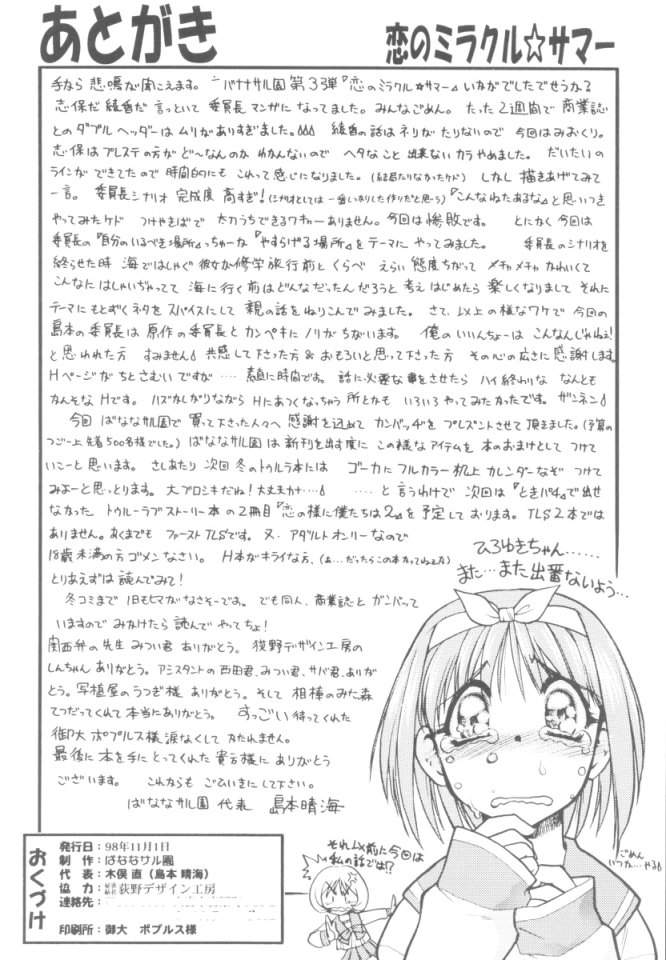 あとがき
恋のミラクル☆サマー
手なら 悲鳴が聞こえます。 バナナサル園 第33弾『恋のミラクル☆サマー』いかがでしたでせうか?
志保だ 綾香だ 言っといて 委員長マンガになってました。みんなごめん。 たった2週間で 商業誌
とのダブルヘッダーは ムリがありすぎました。 綾香の話は ネリが たりないので 今回はみおくり。
志保は プレステの方が ど〜なんのか わかんないので ヘタなこと 出来ないから やめました。 だいたいの
ラインが できてたので 時間的にも これって感じになりました。(結局たりなかったケド) しかし 描きあげてみて
一言。 委員長シナリオ 完成度 高すぎ!(シナリオとしては 一番しっかりした作りだと思う)『こんなねたあるな』と思いつき
やってみたケド つけやきばで 太刀うちできるワキャーありません。今回は惨敗です。 とにかく 今回は
委員長の『自分のいるべき場所』っちゅーか『やすらげる場所』をテーマに やってみました。 委員長のシナリオを
終らせた時 海ではしゃぐ 彼女が 修学旅行前と くらべ えらい 態度ちがって メチャメチャ かわいくて
こんなに はしゃいぢゃって 海に行く前は どんなだったんだろうと 考えはじめたら 楽しくなりまして それに
テーマにもとずくネタを スパイスにして 親の話を ねりこんでみました。 さて、以上の様なワケで 今回の
島本の委員長は 原作の委員長と カンペキに ノリがちがいます。 俺の いいんちょーは こんなんじゃねぇ!
と思われた方 すみません 共感して下さった方& おもろいと思って下さった方 その心の広さに 感謝します。
Hページが ちとさむいですが…… 素直に時間です。 話に必要な事をさせたら ハイ終わりな なんとも
かんそな Hです。 ハズかしがりながら Hにあつくなっちゃう 所とかも いろいろ やってみたかったです。ザンネン
今回 ばななサル園で 買って下さった人々へ 感謝を込めて カンバッヂを プレゼントさせて 頂きました。(予算の
つごー上 先着500名様でした。) ばななサル園は 新刊を出す度に この様なアイテムを 本のおまけとして つけて
いこーと思います。 さしあたり 次回 冬のトゥルラ本には ゴーカに フルカラー 机上 カレンダーなぞ つけて
みよーと思っとります。 大ブロシキだね! 大丈夫か…… ……と言うわけで 次回は『ときパチ』で出せ
なかった トゥルーラブストーリー本 の2冊目『恋の様に僕たちは2』を予定しております。TLS2本では
ありません。あくまでも ファーストTLSです。 又、アダルトオンリーなので
18歳未満の方 ゴメンなさい。 H本がキライな方、
とりあえずは 読んでみて!
冬コミまで 1日もヒマがなさそーです。 でも同人、商業誌と ガンバって
いますので みかけたら 読んで やってちょ!
関西弁の先生 みつい君 ありがとう。 荻野デザイン工房の
しんちゃん ありがとう。アシスタントの 西田君、みつい君、サバ君、ありが
とう。写植屋の うつぎ様 ありがとう。そして 相棒の みた森
てつだってくれて 本当にありがとう。 すっごい 待ってくれた
御大 ポプルス様 涙なくして かたれません。
最後に 本を手に とってくれた 貴方様に ありがとう
ございます。 これからも ごひいきに して下さい。
ばななサル園 代表 島本晴海
ひろゆきちゃん……
また…また出番ないよう…
ごめん
いつか…やる
それ以前に今回は
私の話では!?
おくづけ
発行日：98年11月1日
制 作：ばななサル園
代 表：木俣 直（島本 晴海）
協 力：荻野デザイン工房
連絡先：
印刷所：御大 ポプルス様